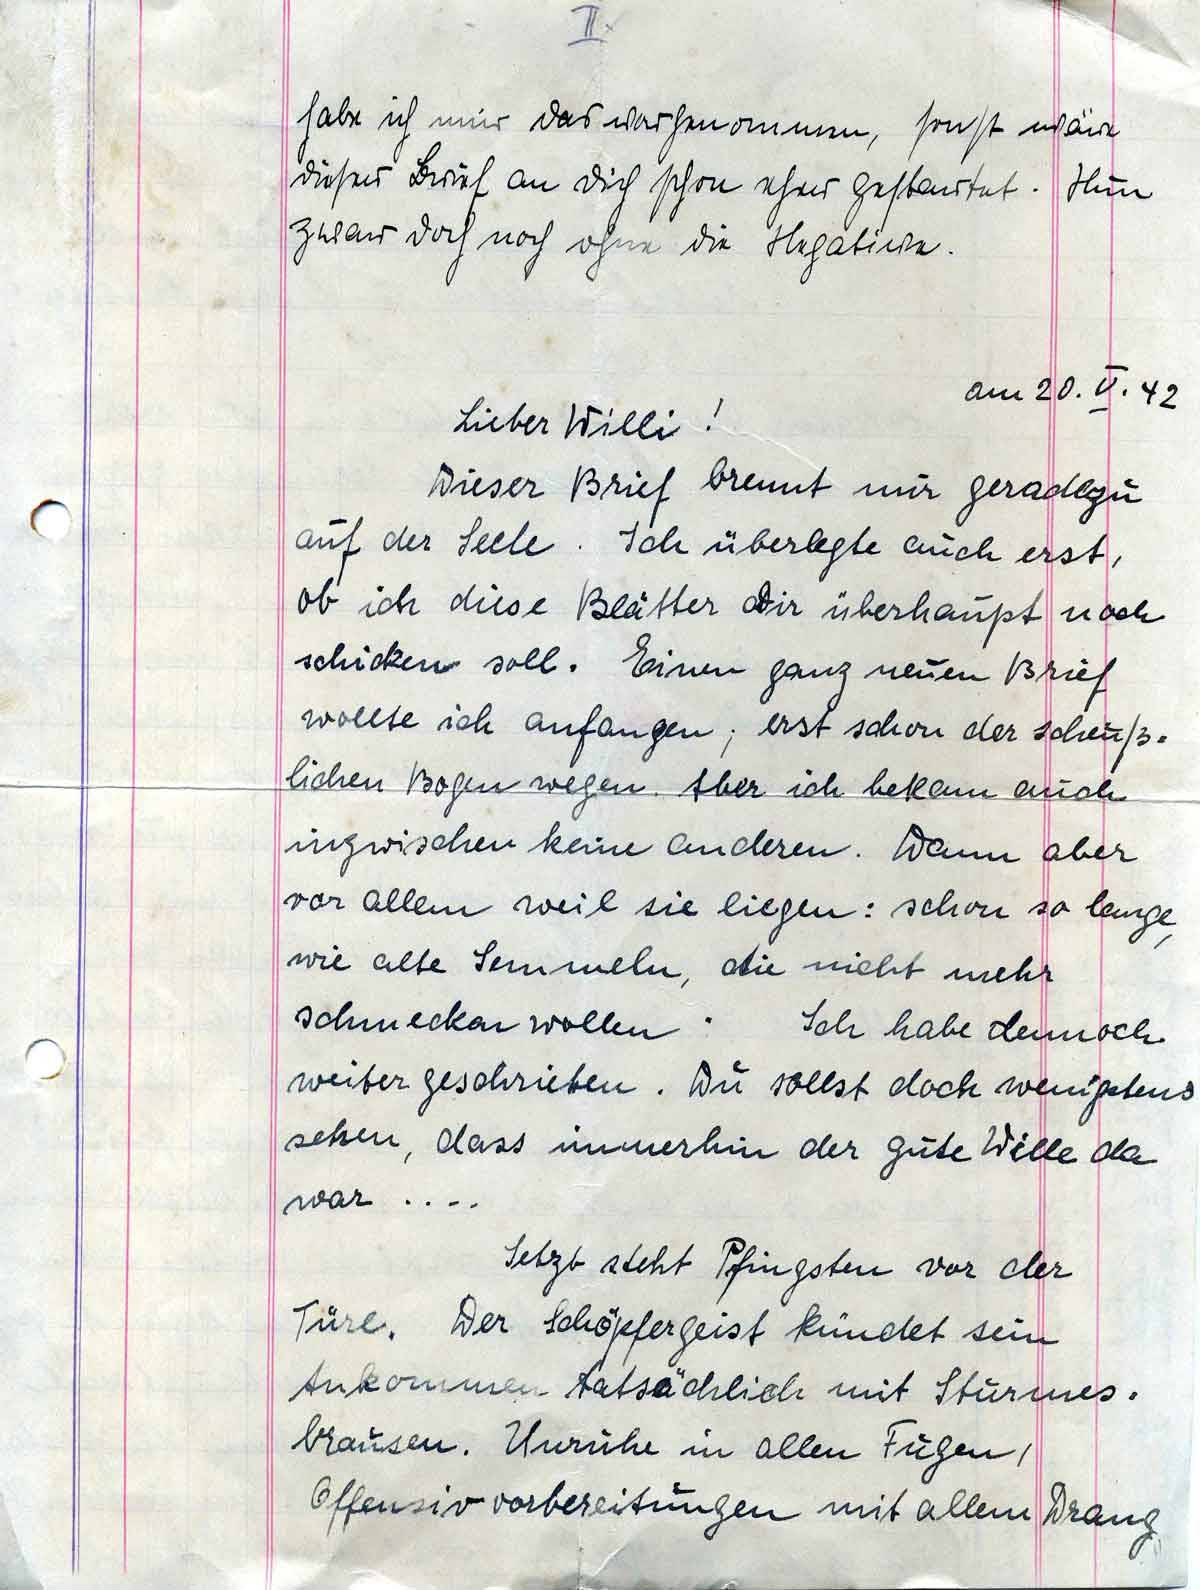 II.
habe ich mir das vorgenommen, sonst wäre
dieser Brief an Dich schon eher gestartet. Nun
zwar doch noch ohne die Negative.
am 20. V. 42
Lieber Willi!
Dieser Brief brennt mir geradezu
auf der Seele. Ich überlegte auch erst,
ob ich diese Blätter Dir überhaupt noch
schicken soll. Einen ganz neuen Brief
wollte ich anfangen, erst schon der scheuß-
lichen Bogen wegen. Aber ich bekam auch
inzwischen keine anderen. Dann aber
vor allem weil sie liegen: schon so lange,
wie alte Semmeln, die nicht mehr
schmecken wollen. Ich habe dennoch
weiter geschrieben. Du sollst doch wenigstens
sehen, dass immerhin der gute Wille da
war ....
Jetzt steht Pfingsten vor der
Türe. Der Schöpfergeist kündet sein
Ankommen tatsächlich mit Sturmes-
brausen. Unruhe in allen Fugen,
Offensivvorbereitungen mit allem Drang